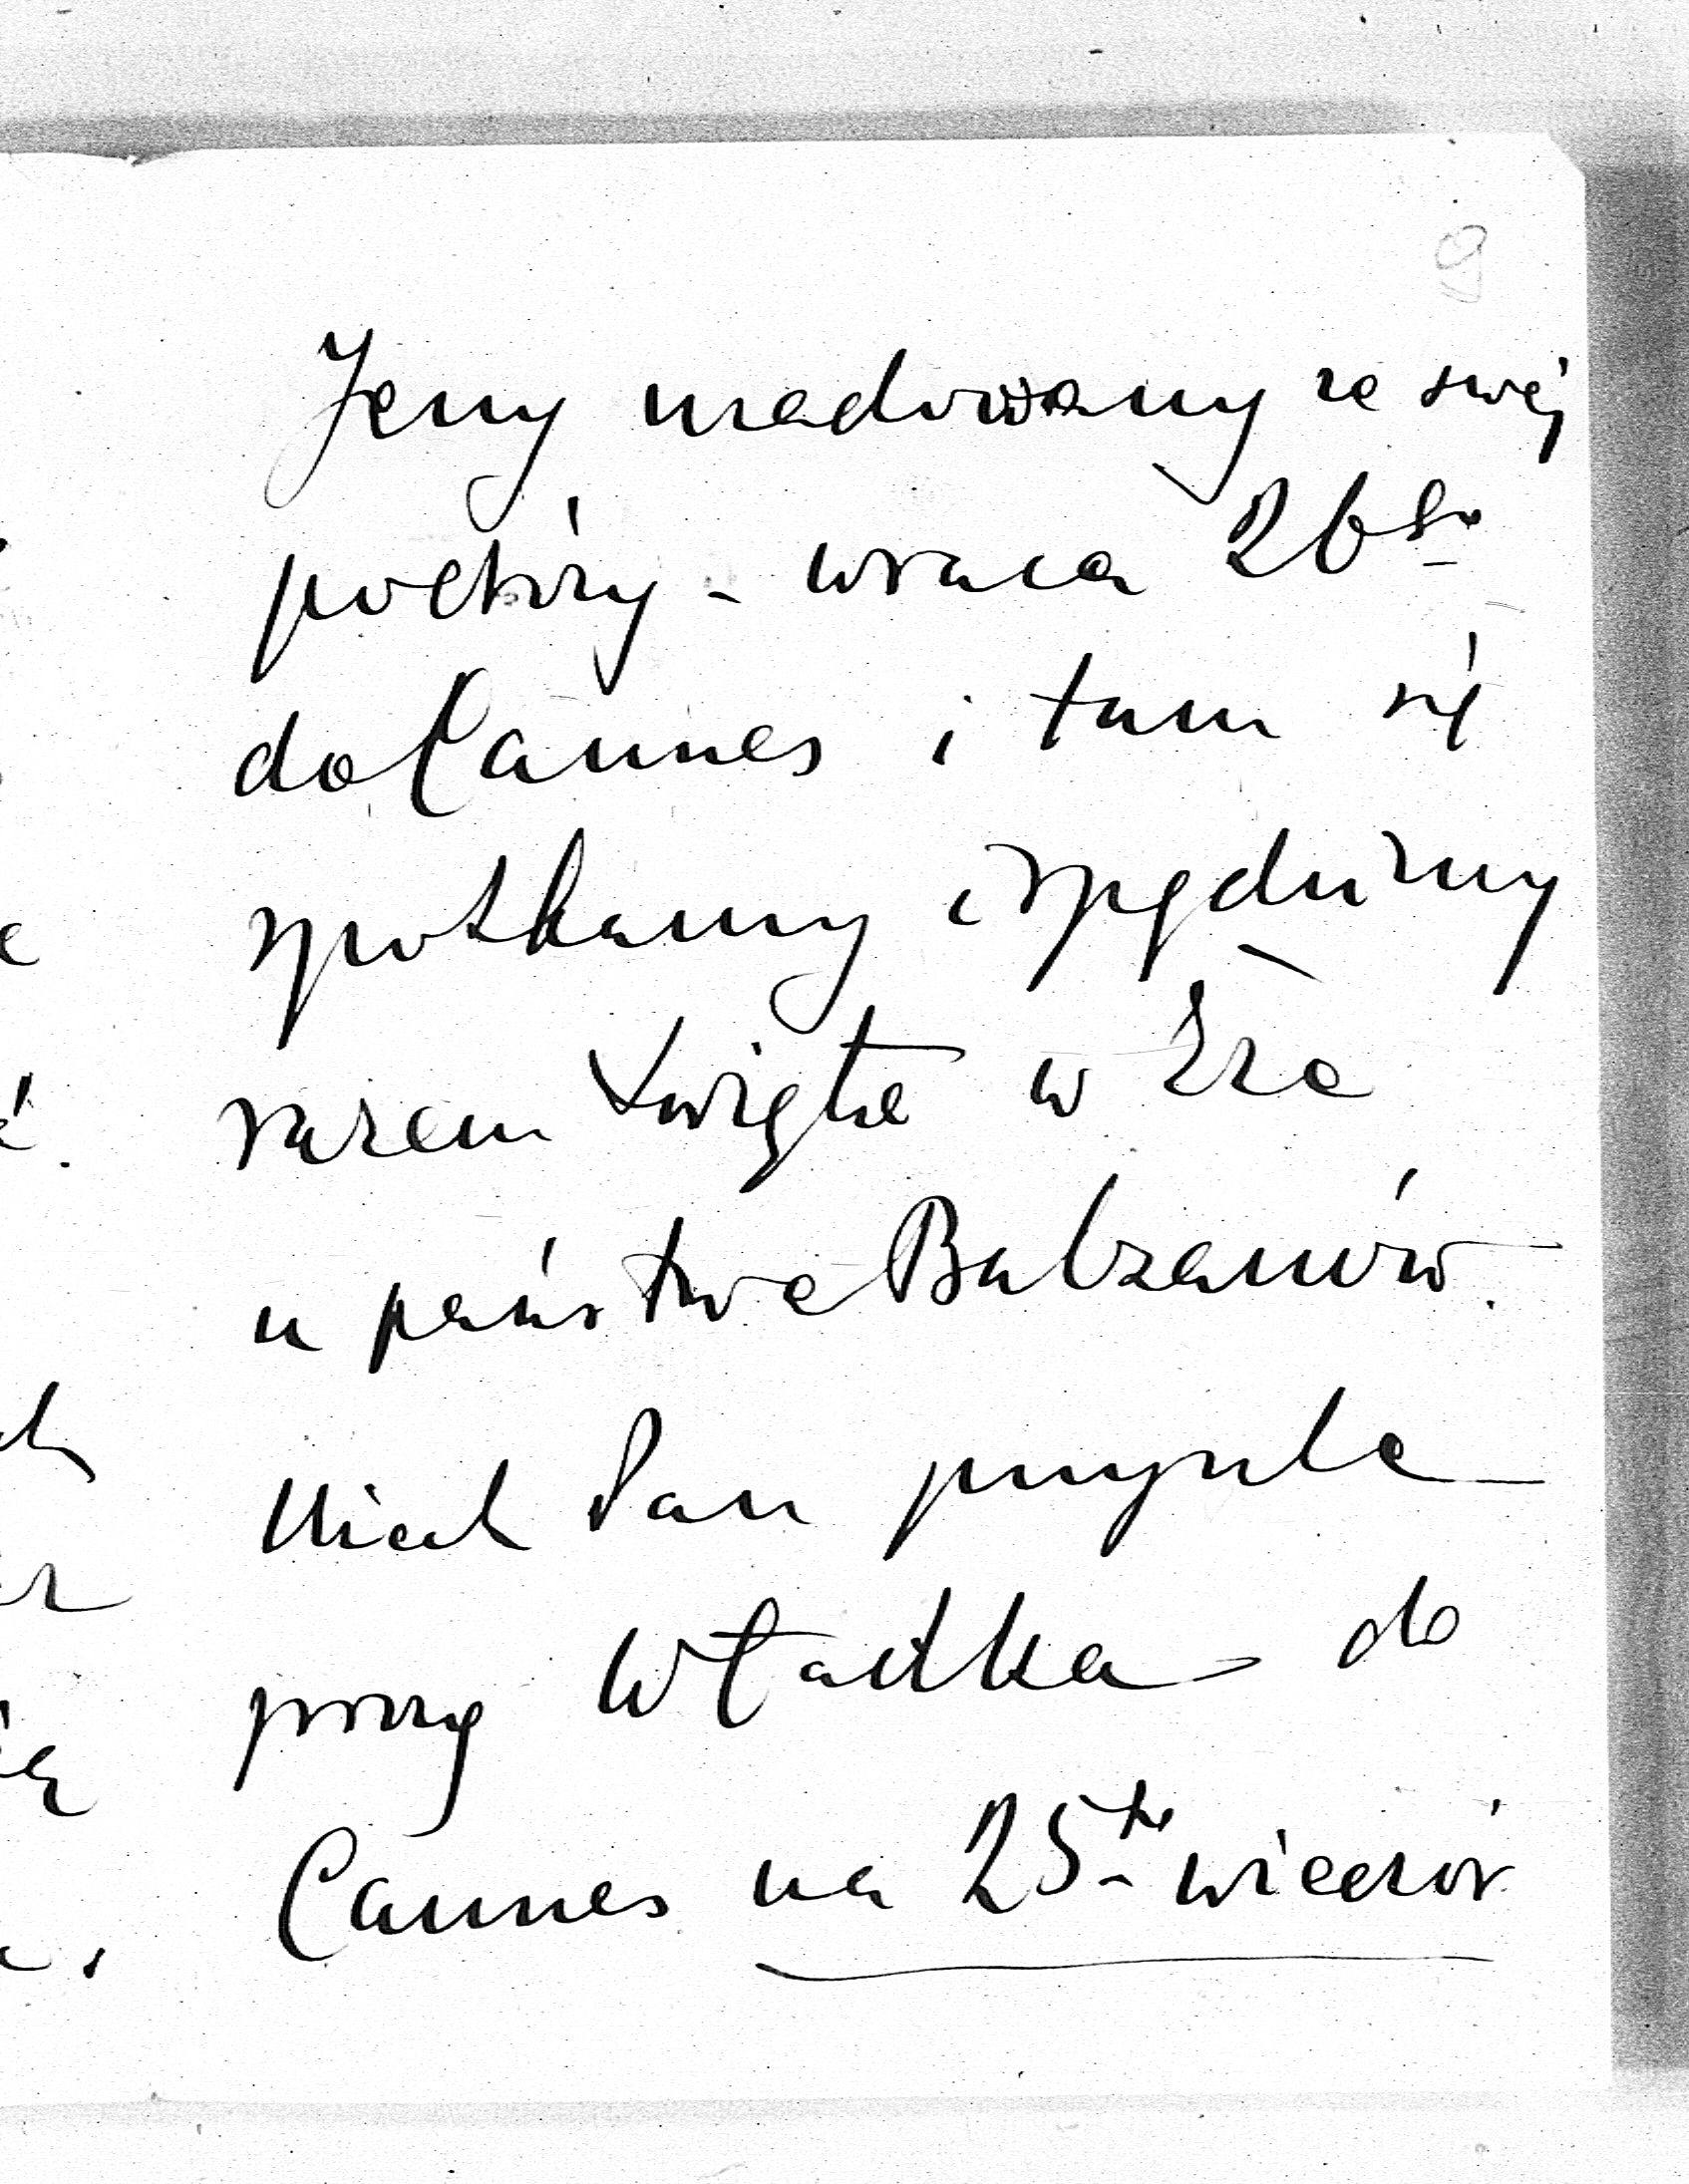 9
Jerzy uradowany ze swej
podróży - wraca 26go
do Cannes i tam się
spotkamy i spędzimy
razem Święta w Eze
u państwa Balzanów.
Niech Pan przyśle
proszę Władka do
Cannes na 25te wieczór